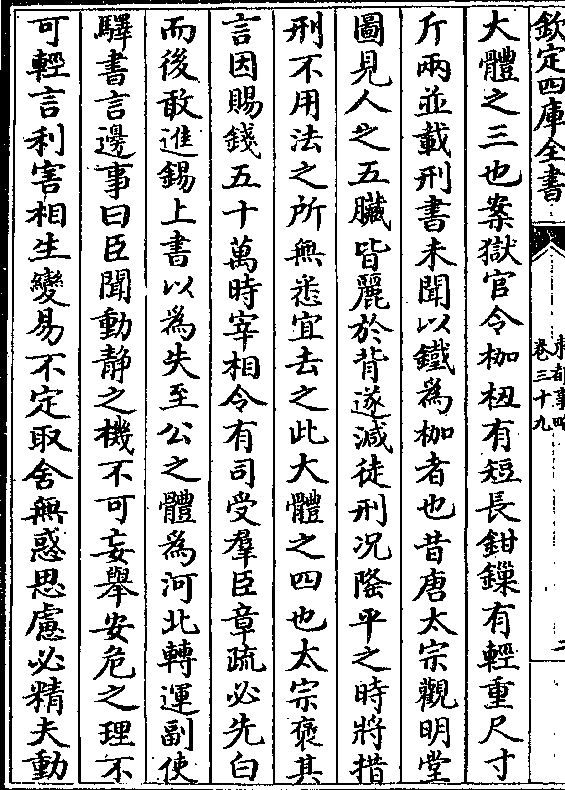 欽定四庫全書
東都事略
卷三十九
二
大體之三也案獄官令枷杻有短長鉗鏁有輕重尺寸
斤兩並載刑書未聞以鐵為枷者也昔唐太宗觀明堂
圖見人之五臟皆麗於背遂減徒刑况隆平之時將措
刑不用法之所無悉宜去之此大體之四也太宗褒其
言因賜錢五十萬時宰相令有司受羣臣章疏必先白
而後敢進錫上書以為失至公之體為河北轉運副使
驛書言邊事曰臣聞動静之機不可妄舉安危之理不
可輕言利害相生變易不定取舍無惑思慮必精夫動